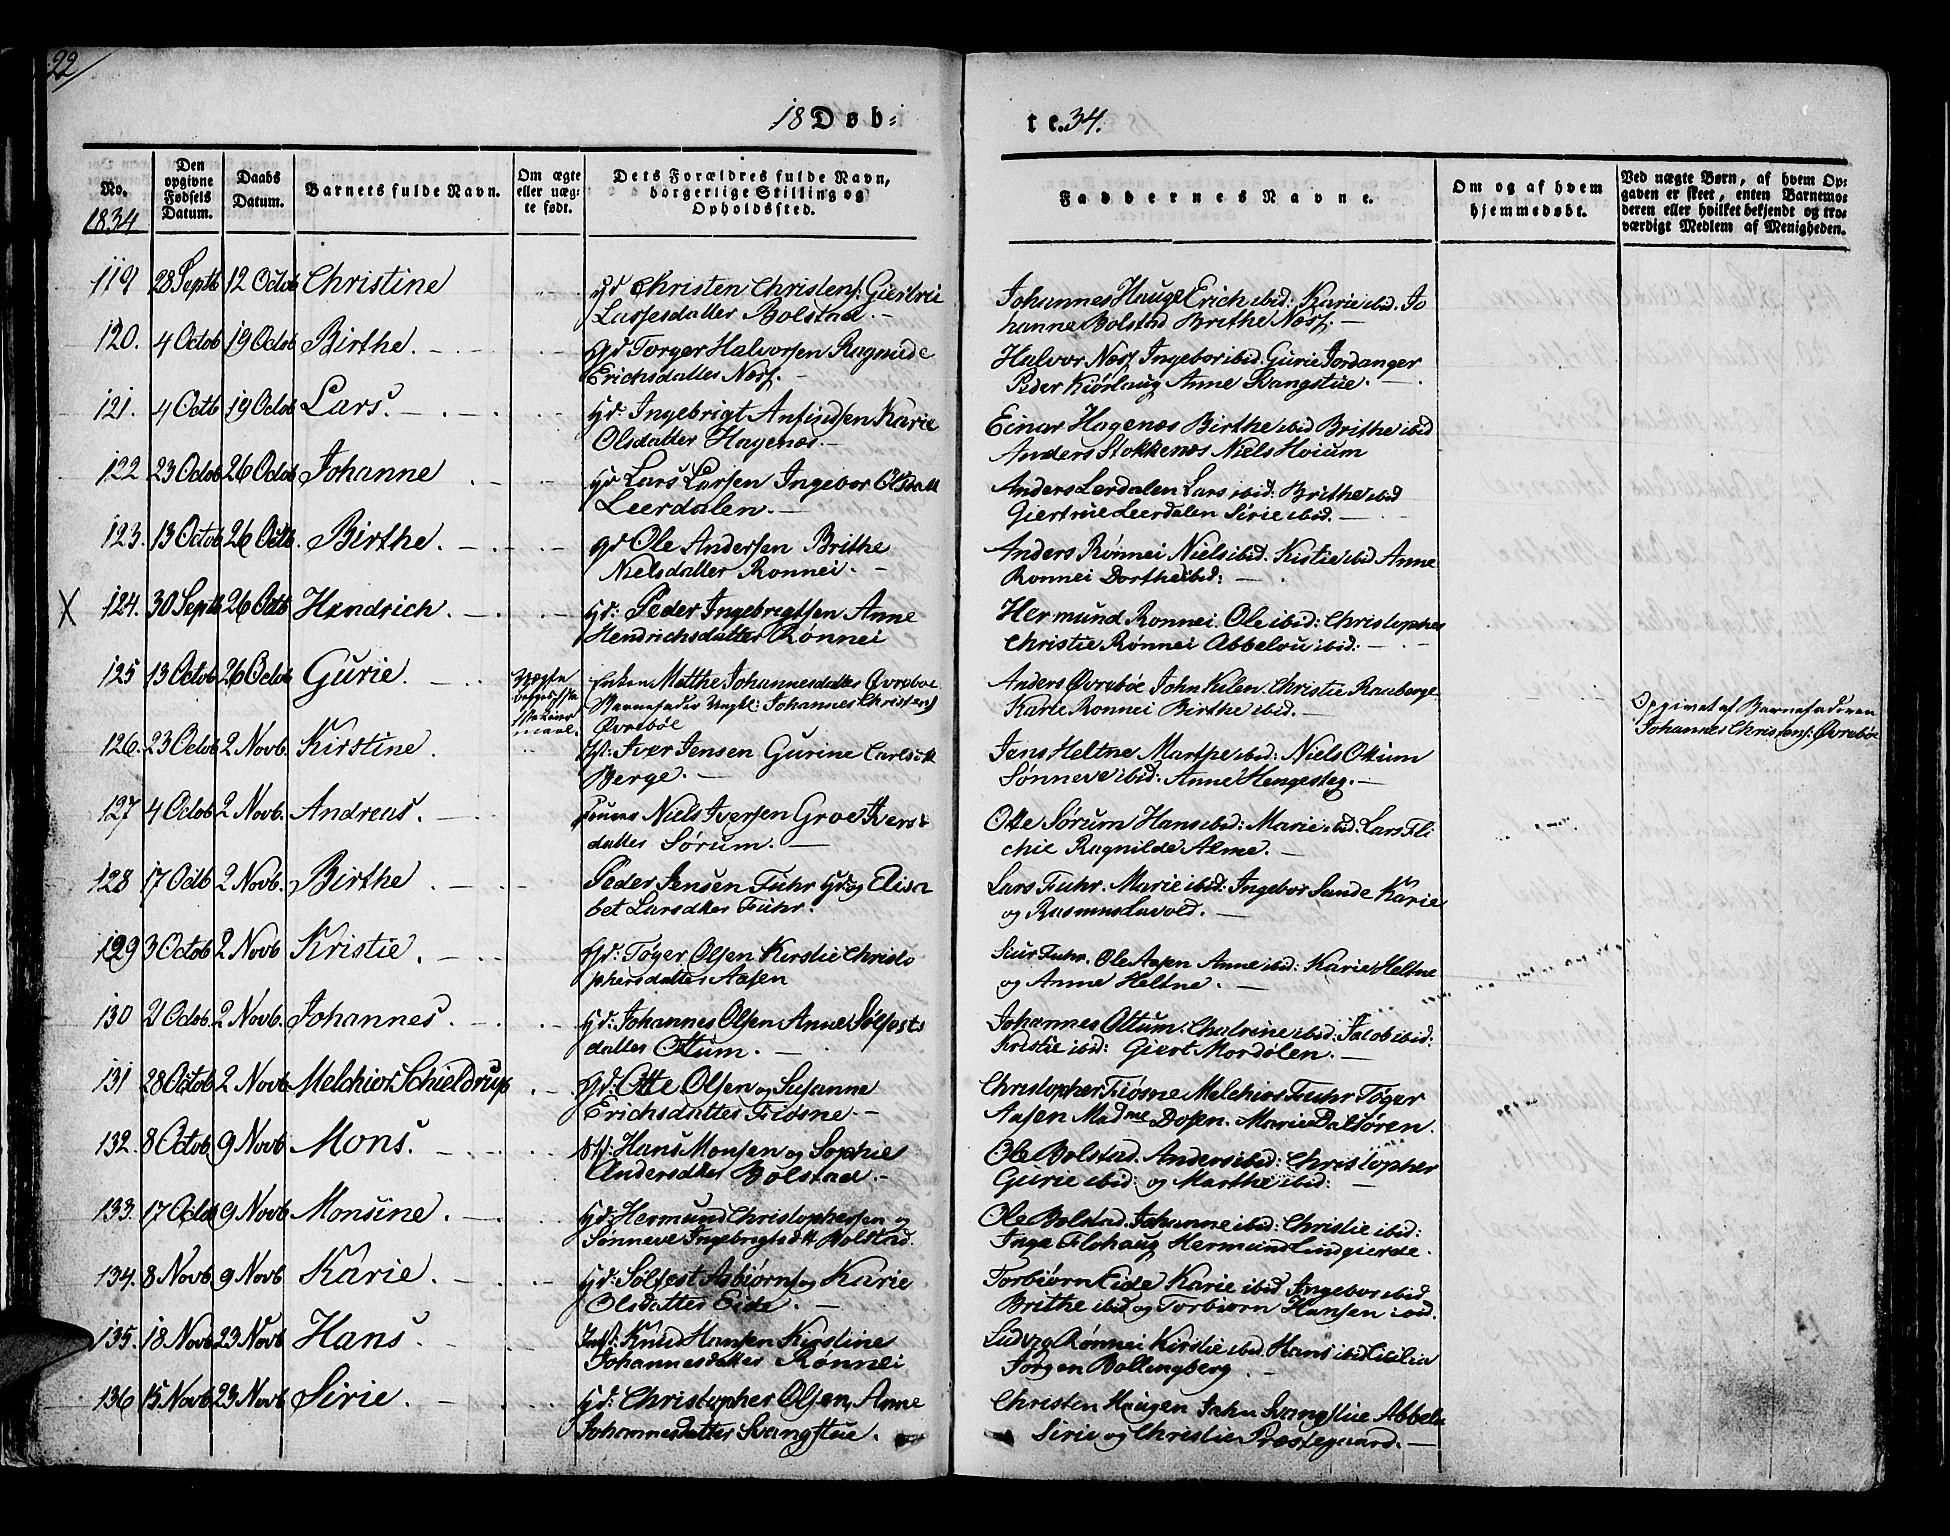 22
18 Døb-
te.34.
No.
1834
Den opgivne Fødsels Datum.
Daabs Datum.
Barnets fulde Navn.
Om ægte eller uæg- te født.
Dets Forældres fulde Navn, borgerlige Stilling og Opholdssted.
Faddernes Navne.
Om og af hvem hjemmedøbt.
Ved uægte Børn, af hvem Op- gaven er skeet, enten Barnemo- deren eller hvilket bekjendt og tro- værdigt Medlem af Menigheden.
119 28 Septb 12 Octob Christine gd Christen Christens: Giertrue
Lassesdatter Bolstad.
Johannes Hauge Erich ibid: Karie ibid. Jo
hanne Bolstad Brithe Næss.
120. 4 Octob 19 Octob Birthe. gd Torger Halvorsen Ragnilde
Erichsdatter Næss.
Halvor Næss Ingebor ibid. Gurie Jordanger
Peder Kiørlaug Anne Svangstue.
121. 4 Octb 19 Octob Lars. gd: Ingebrigt Anfindsen Karie
Olsdatter Hagenæs.
Einar Hagenæs Birthe ibid Brithe ibid
Anders Stokkenæs Niels Hoium
122 23 Octob 26 Octob Johanne gd Lars Larsen Ingebor Olsdatt
Leerdalen.
Anders Lerdalen Lars ibid: Brithe ibid
Giertrue Leerdalen Sirie ibid.
123. 13 Octob 26 Octb. Birthe. gd Ole Andersen Brithe
Nielsdatter Ronnei.
Anders Rønnei Niels ibid. Kistie ibid Anne
Ronnei Dorthe ibid:
X 124. 30 Septb 26 Octb Hendrich. gd: Peder Ingebrigtsen Anne
Hendrichsdatter Rønnei
Hermund Ronnei. Ole ibid: Christopher
Christie Rønnei Abbelou ibid:
125 13 Octob 26 Octob Gurie. Uægte
Enken Marthe Johannesdatter Øvrebøe
Barnefader Ungk: Johannes Christens
Øvrebøe
Anders Øvrebøe John Kilen. Christie Raaberge
Karie Ronnei Birthe ibid.
Opgivet af Barnefaderen
Johannes Christens: Øvrebøe
126. 23 Octob 2 Novb. Kirstine. Iver Jensen Gurine Carlsdtt
Berge.
Jens Heltne Marthe ibid: Niels Ottum
Sønneve ibid: Anne Hengesteg.
127 4 Octob 2 Novb. Andreas. Niels Iversen Groe Ivers
datter Sørum.
Otte Sørum Hans ibid: Marie ibid: Lars Fli
chie Ragnilde Alme.
128 17 Octb 2 Novb. Birthe. Peder Jensen Fuhr gd og Elisa
bet Larsdtter Fuhr.
Lars Fuhr. Marie ibid: Ingebor Sande Karie
og Rasmus Luvold.
129 3 Octob 2 Novb Kristie. gd: Tøger Olsen Kirstie Christo
phersdatter Aasen
Siur Fuhr. Ole Aasen Anne ibid: Karie Heltne
og Anne Heltne.
130 21 Octob. 2 Novb. Johannes. gd: Johannes Olsen Anne Sølfests
datter Ottum.
Johannes Ottum. Chatrine ibid: Jacob ibid:
Kristie ibid: Giert Mordølen.
131 28 Octob 2 Novb Melchior Schieldrup gd: Otte Olsen og Susanne
Erichsdatter Fiøsne.
Christopher Fiøsne Melchior Fuhr Tøger
Aasen Madme Dosen. Marie Dalsøren.
132. 8 Octob 9 Novb Mons. Hans Monsen og Sophie
Andersdtter Bolstad.
Ole Bolstad. Anders ibid: Christopher
Gurie ibid: og Marthe ibid:
133. 17 Octob 9 Novb Monsine. gd: Hermund Christophersen og
Sønneve Ingebrigtsdtt Bolstad.
Ole Bolstad. Johanne ibid: Christie ibid:
Inge Flohaug Hermund Lindgierde.
134. 8 Novb 9 Novb Karie. gd: Sølfest Asbiørns og Karie
Olsdatter Eide.
Torbiørn Eide Karie ibid Ingebor ibid
Brithe ibid og Torbiørn Hansen ibid.
135. 18 Novb 23 Novb Hans. Knud Hansen Kirstine
Johannesdatter Rønnei
Ludvig Rønnei Kirstie ibid. Hans ibid Cicilia
Jørgen Bollingberg.
136 15 Novb 23 Novb Sirie. gd: Christopher Olsen, Anne
Johannesdatter Svangstue.
Christen Haugen John Svangstue Abbelu
Sirie og Christie Præstegaard.